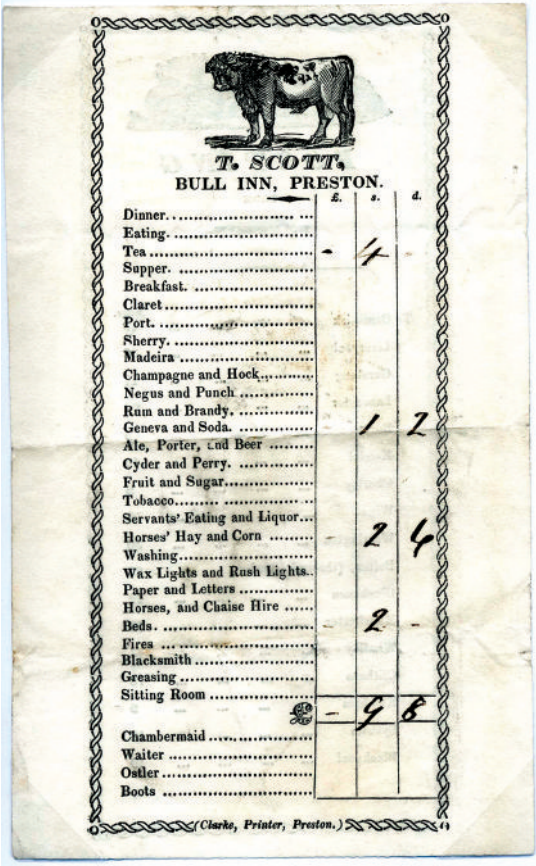 T. SCOTT,
BULL INN, PRESTON.
£. s. d.
Dinner.
Eating.
Tea - 4 -
Supper.
Breakfast.
Claret
Port.
Sherry.
Madeira
Champagne and Hock
Negus and Punch
Rum and Brandy.
Geneva and Soda. 1 2
Ale, Porter, and Beer
Cyder and Perry.
Fruit and Sugar
Tobacco
Servants' Eating and Liquor
Horses' Hay and Corn 2 6
Washing
Wax Lights and Rush Lights
Paper and Letters
Horses, and Chaise Hire
Beds. 2 -
Fires
Blacksmith
Greasing
Sitting Room
£ - 9 8
Chambermaid
Waiter
Ostler
Boots
(Clarke, Printer, Preston.)